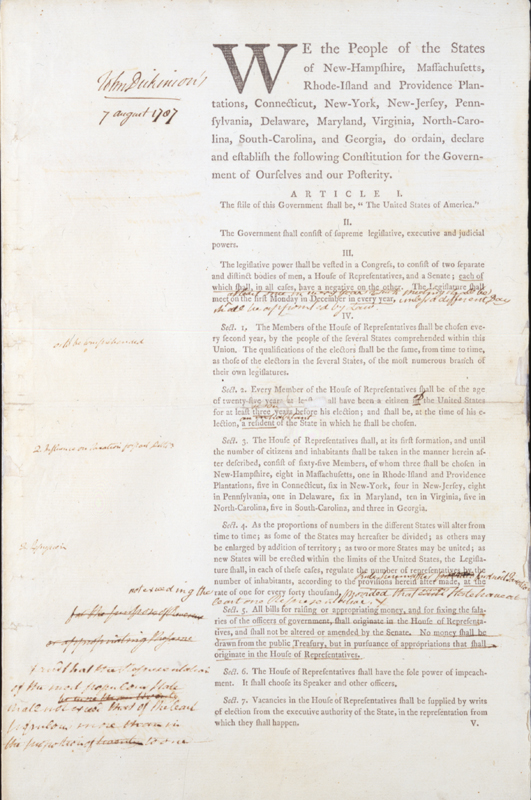 John Dickinson's
7 august 1787
WE the People of the States
of New-Hampshire, Massachusetts,
Rhode-Island and Providence Plan-
tations, Connecticut, New-York, New-Jersey, Penn-
sylvania, Delaware, Maryland, Virginia, North-Caro-
lina, South-Carolina, and Georgia, do ordain, declare
and establish the following Constitution for the Govern-
ment of Ourselves and our Posterity.
ARTICLE I.
The stile of this Government shall be, "The United States of America."
II.
The Government shall consist of supreme legislative, executive and judicial
powers.
III.
The legislative power shall be vested in a Congress, to consist of two separate
and distinct bodies of men, a House of Representatives, and a Senate; each of
which shall, in all cases, have a negative on the other. The Legislature shall
meet on the first Monday in December in every year,
unless a different Day
shall be appointed by Law
IV.
Sect. 1, The Members of the House of Representatives shall be chosen eve-
ry second year, by the people of the several States comprehended within this
Union. The qualifications of the electors shall be the same, from time to time,
as those of the electors in the several States, of the most numerous branch of
their own legislatures.
Sect. 2. Every Member of the House of Representatives shall be of the age
of twenty-five years at least; shall have been a citizen of the United States
for at least three years before his election; and shall be, at the time of his e-
lection, a resident of the State in which he shall be chosen.
an inhabitant
Sect. 3. The House of Representatives shall, at its first formation, and until
the number of citizens and inhabitants shall be taken in the manner herein af-
ter described, consist of sixty-five Members, of whom three shall be chosen in
New-Hampshire, eight in Massachusetts, one in Rhode-Island and Providence
Plantations, five in Connecticut, six in New-York, four in New-Jersey, eight
in Pennsylvania, one in Delaware, six in Maryland, ten in Virginia, five in
North-Carolina, five in South-Carolina, and three in Georgia.
Sect. 4. As the proportions of numbers in the different States will alter from
time to time; as some of the States may hereafter be divided; as others may
be enlarged by addition of territory; as two or more States may be united; as
new States will be erected within the limits of the United States, the Legisla-
ture shall, in each of these cases, regulate the number of representatives by the
number of inhabitants, according to the provisions herein after made, at the
not exceeding the
rate of one for every forty thousand,
provided that
Sect. 5. All bills for raising or appropriating money, and for fixing the sala-
ries of the officers of government, shall originate in the House of Representa-
tives, and shall not be altered or amended by the Senate. No money shall be
drawn from the public Treasury, but in pursuance of appropriations that shall
originate in the House of Representatives.
Sect. 6. The House of Representatives shall have the sole power of impeach-
ment. It shall choose its Speaker and other officers.
Sect. 7. Vacancies in the House of Representatives shall be supplied by writs
of election from the executive authority of the State, in the representation from
which they shall happen.
V.
that the representation
of the most populous State
shall not exceed that of the least
populous more than in
the proportion of to one